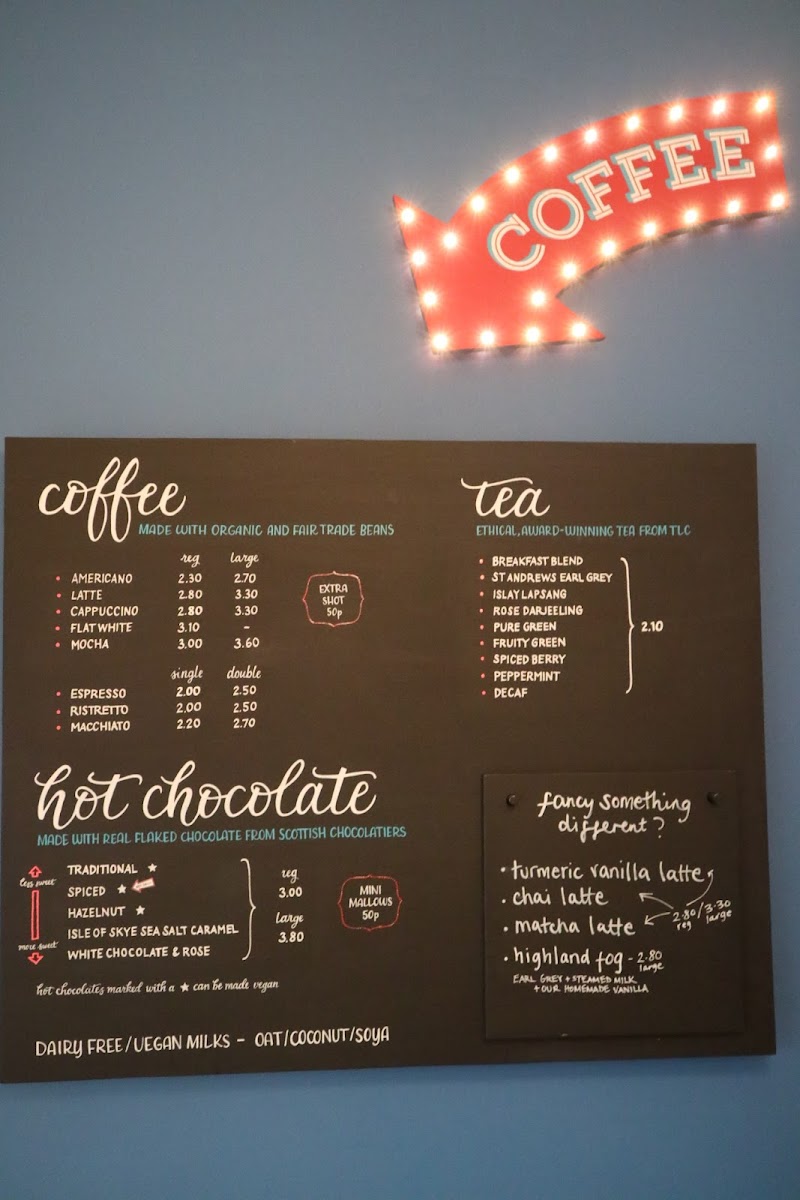 COFFEE
coffee
MADE WITH ORGANIC AND FAIRTRADE BEANS
reg large
• AMERICANO 2.30 2.70
• LATTE 2.80 3.30
• CAPPUCCINO 2.80 3.30
• FLAT WHITE 3.10 -
• MOCHA 3.00 3.60
EXTRA
SHOT
50p
single double
• ESPRESSO 2.00 2.50
• RISTRETTO 2.00 2.50
• MACCHIATO 2.20 2.70
tea
ETHICAL, AWARD-WINNING TEA FROM TLC
• BREAKFAST BLEND
• ST ANDREWS EARL GREY
• ISLAY LAPSANG
• ROSE DARJEELING
• PURE GREEN
• FRUITY GREEN
• SPICED BERRY
• PEPPERMINT
• DECAF
2.10
hot chocolate
MADE WITH REAL FLAKED CHOCOLATE FROM SCOTTISH CHOCOLATIERS
less sweet
more sweet
TRADITIONAL ★
SPICED ★
HAZELNUT ★
ISLE OF SKYE SEA SALT CARAMEL
WHITE CHOCOLATE & ROSE
reg
3.00
large
3.80
MINI
MALLOWS
50p
hot chocolates marked with a ★ can be made vegan
DAIRY FREE/VEGAN MILKS - OAT/COCONUT/SOYA
fancy something
different?
• turmeric vanilla latte
• chai latte
• matcha latte
2.80/3.30
reg large
• highland fog - 2.80
large
EARL GREY + STEAMED MILK
+ OUR HOMEMADE VANILLA